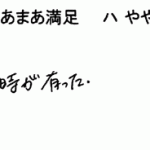 あまあ満足　ハ やや
時が有った.